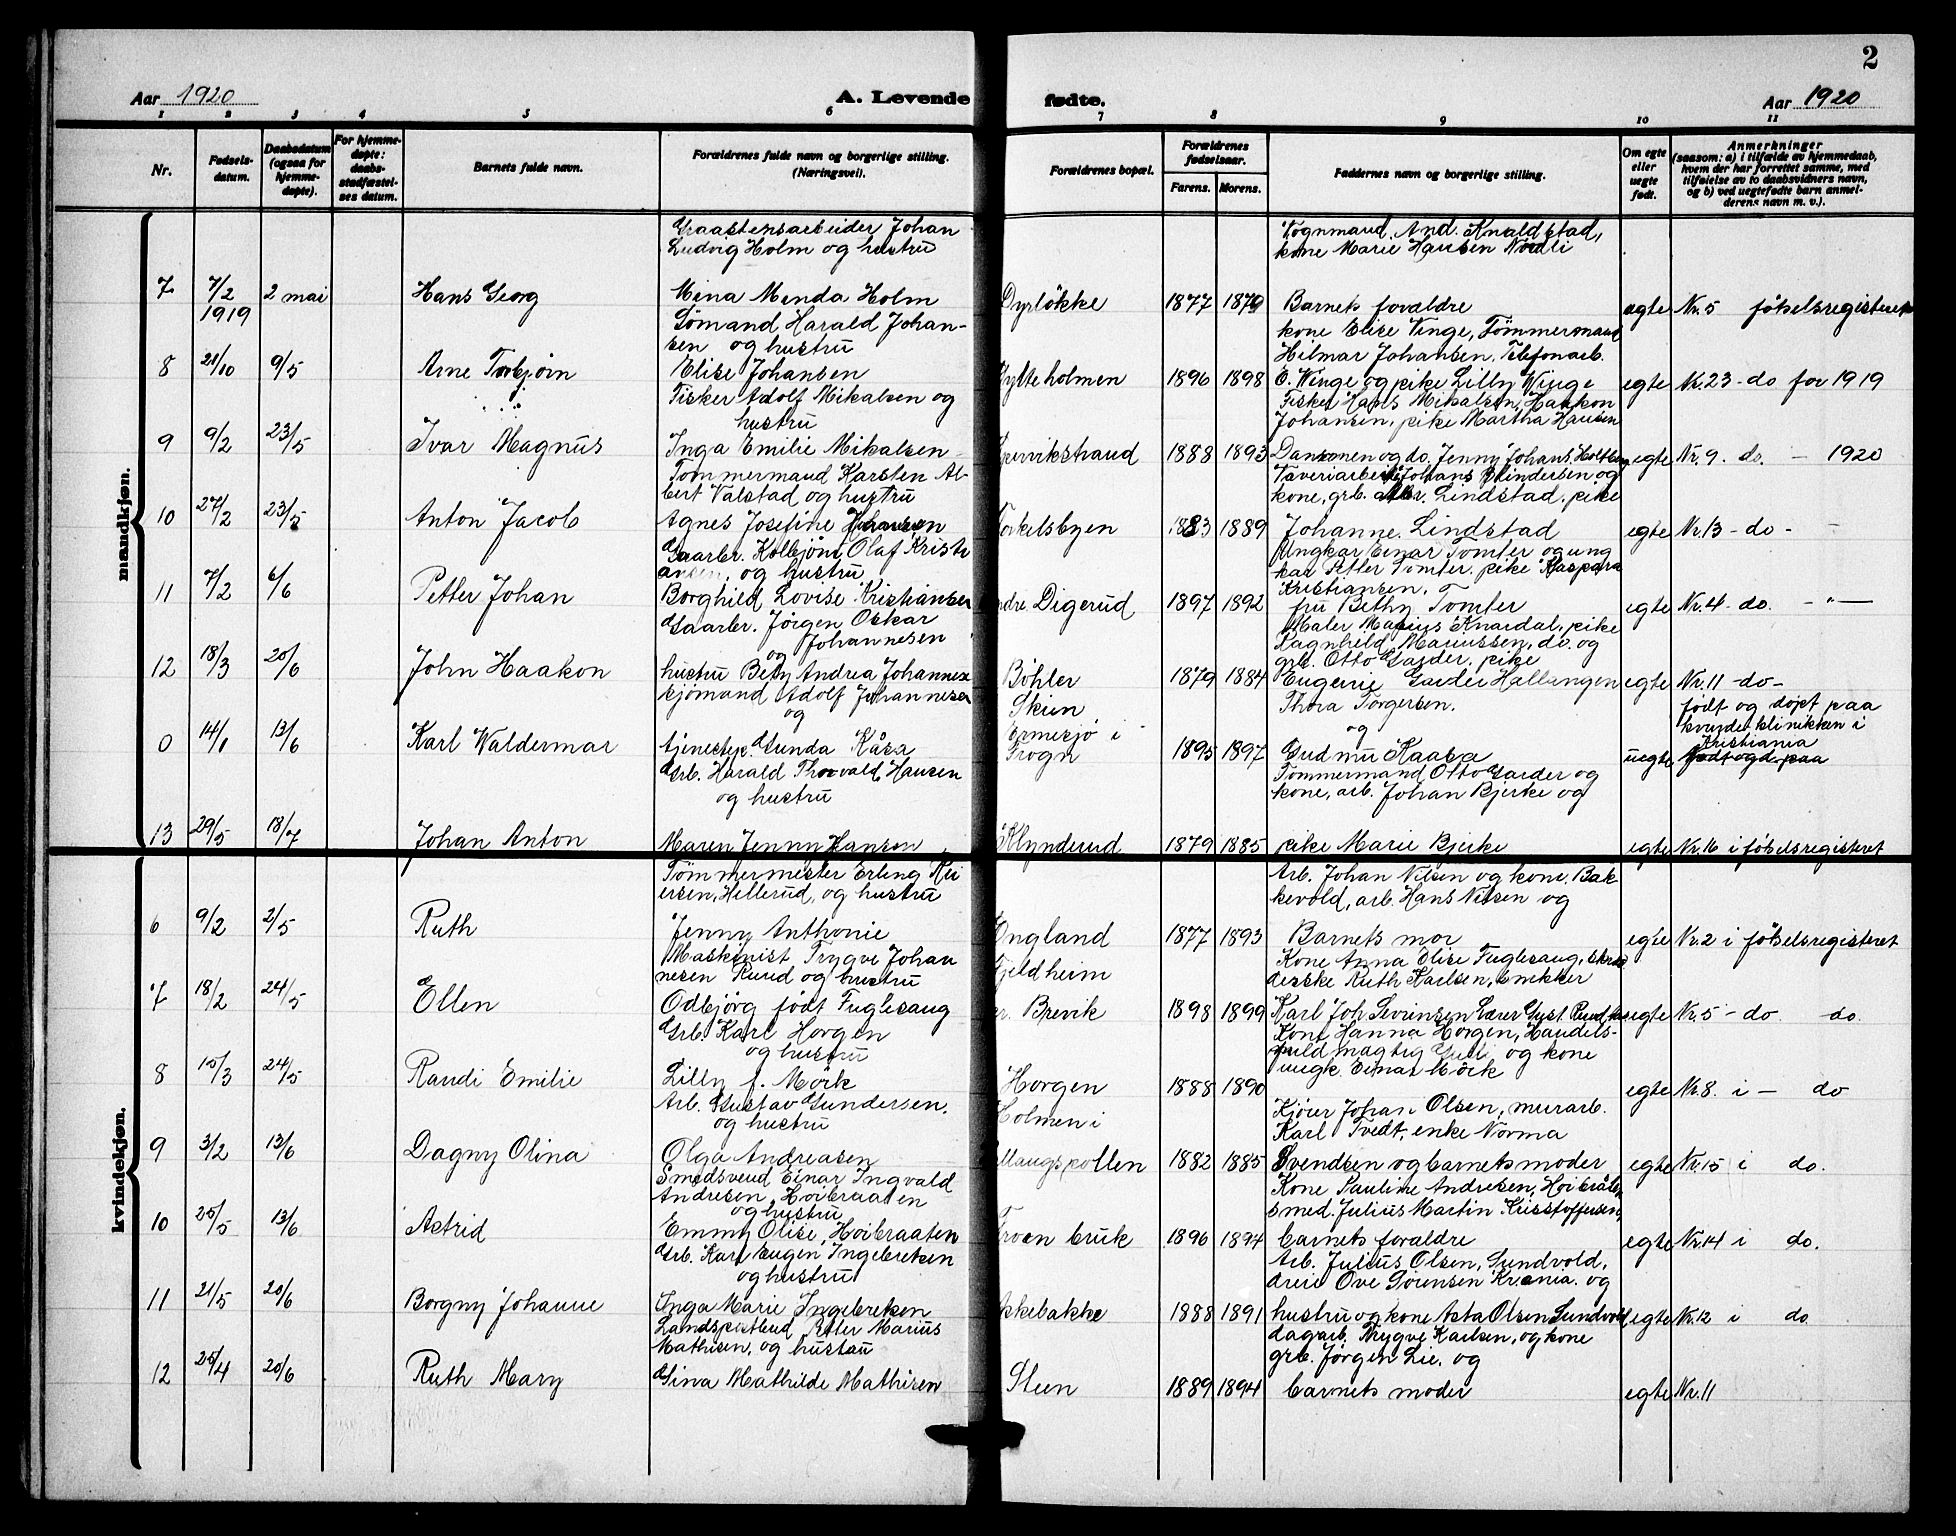 2
Aar 1920
A. Levende
fødte.
Aar 1920
1 2 3 4 5 6 7 8 9 10 11
Nr.
Fødsels-
datum.
Daabsdatum
(ogsaa for
hjemme-
døpte).
For hjemme-
døpte:
daabs-
stadfæstel-
ses datum.
Barnets fulde navn.
Forældrenes fulde navn og borgerlige stilling.
(Næringsvei).
Forældrenes bopæl.
Forældrenes
fødselsaar.
Farens. Morens.
Faddernes navn og borgerlige stilling.
Om egte
eller
uegte
født.
Anmerkninger
(saasom: a) i tilfælde av hjemmedaab,
hvem der har forrettet samme, med
tilføielse av to daabsvidners navn,
og b) ved uegtefødte barn anmel-
derens navn m. v.).
mandkjøn.
Graastensarbeider Johan
Ludvig Holm og hustru
Lognmand. And. Knaldstad,
kone Marie Hansen Nordli
7 7/2 2 mai Hans Georg Mina Menda Holm Dyrløkke 1877 1879 Barnets foraldre egte Nr. 5 fødselsregisteret
1919 Sømand Harald Johan-
sen og hustru
kone Elise Vinge, Tømmermand
Hilmar Johansen, Telefonarb.
8 21/10 9/5 Arne Torbjørn Elise Johansen Hytteholmen 1896 1898 E. Winge og pike Lilly Winge egte Nr. 23 - do for 1919
Fisker Adolf Mikalsen og
hustru
Fisker Hans Mikalsen, Haakon
Johansen, pike Martha Hansen
9 9/2 23/5 Ivar Magnus Inga Emilie Mikalsen 1888 1893 og do. Jenny Johans, egte Nr. 9. do. - 1920
Tømmermand Karsten Al-
bert Valstad og hustru
Johans Blindersen og
kone, grb. Lindstad. pike
10 27/2 23/5 Anton Jacob Agnes Josefine Torkelsbyen 1883 1889 Johanne Lindstad egte Nr. 13 - do -
Gaarbr. Kolbjørn Olaf Kristi
ansen, og hustru
Ungkar Einar Tomter og ung
kar Petter Tomter. pike Kaspara
Kristiansen.
11 7/2 6/6 Petter Johan Borghild Lovise Kristiansen ndre Digerud 1897 1892 fru Bethy Tomter egte Nr. 4 - do. - " -
Gaarbr. Jörgen Oskar
Johannesen
og
Maler Marius Knardal, pike
Ragnhild Mariussen, do. og
grb. Otto Garder, pike
12 18/3 20/6 John Haakon hustru Bety Andrea Johannes Böhler 1879 1884 Eugenie Garder Hallangen egte Nr. 11 - do -
sjömand Adolf Johannesen
og
Skiin
Thora Torgersen.
og
födt og døpt paa
kvindeklinikken i
Kristiania
0 14/1 13/6 Karl Waldermar tjenestep. Gunda Kåsa Ermesjö i
Frogn 1895 1897 Gudmu Kaasa uegte født og d. paa
Grb. Harald Thorvald Hansen
og hustru
Tømmermand Otto Garder og
kone, arb. Johan Bjerke og
13 29/5 18/7 Johan Anton Maren Jenny Hansen Klynderud 1879 1885 pike Marie Bjerke egte Nr. 16 i fødselsregisteret
kvindekjøn.
Tømmermester Erling Rei
ersen, Hillerud, og hustru
Arb. Johan Nilsen og kone, Bak-
kevold, arb. Hans Nilsen og
6 9/2 2/5 Ruth Jenny Anthonie Ongland 1877 1893 Barnets mor egte Nr. 2 i fødselsregisteret
Maskinist Trygve Johan
nesen Ruud og hustru
Fjeldheim
Kone Anna Elise Fuglesang,
Ruth Karlsen, snikker
7 18/2 24/5 Ellen Odbjörg født Fuglesang Brevik 1898 1899 Karl Joh. Sörensen egte Nr. 5 - do do.
Grb. Karl Horgen
og hustru
Kone Hanna Horgen, Handels-
fuldmægtig og kone
ungk. Einar Mörk
8 15/3 24/5 Randi Emilie Lilly f. Mörk Horgen 1888 1890 egte Nr. 8. i - do
Arb. Gustav Gundersen.
og hustru
Holmen i
Kjörer Johan Olsen, murarb.
Karl Tvedt, enke Norma
9 3/2 13/6 Dagny Olina Olga Andreasen llangspollen 1882 1885 Svendsen og barnets moder egte Nr. 15 i do.
Smedsvend Einar Ingvald
Andresen, Höibraaten
og hustru
Kone Pauline Andresen, Höibråten
smed. Julius Martin Kristoffersen,
10 25/5 13/6 Astrid Emmy Olise, Höibraaten Froen bruk 1896 1894 barnets foraldre egte Nr. 14 i do.
Grb. Karl Eugen Ingebretsen
og hustru
Arb. Julius Olsen, Sundvold,
dreier Ove Sörensen Kr.ania. og
11 21/5 20/6 Borgny Johanne Inga Marie Ingebretsen kkebakke 1888 1891 hustru og kone Asta Olsen Sundvold, egte Nr. 12 i do
Landspostbud Peter Marius
Mathisen, og hustau
dagarb. Trygve Karlsen, og kone
grb. Jörgen Lie, og
12 25/4 20/6 Ruth Mary Gina Mathilde Mathisen Steen 1889 1894 barnets moder egte Nr. 11